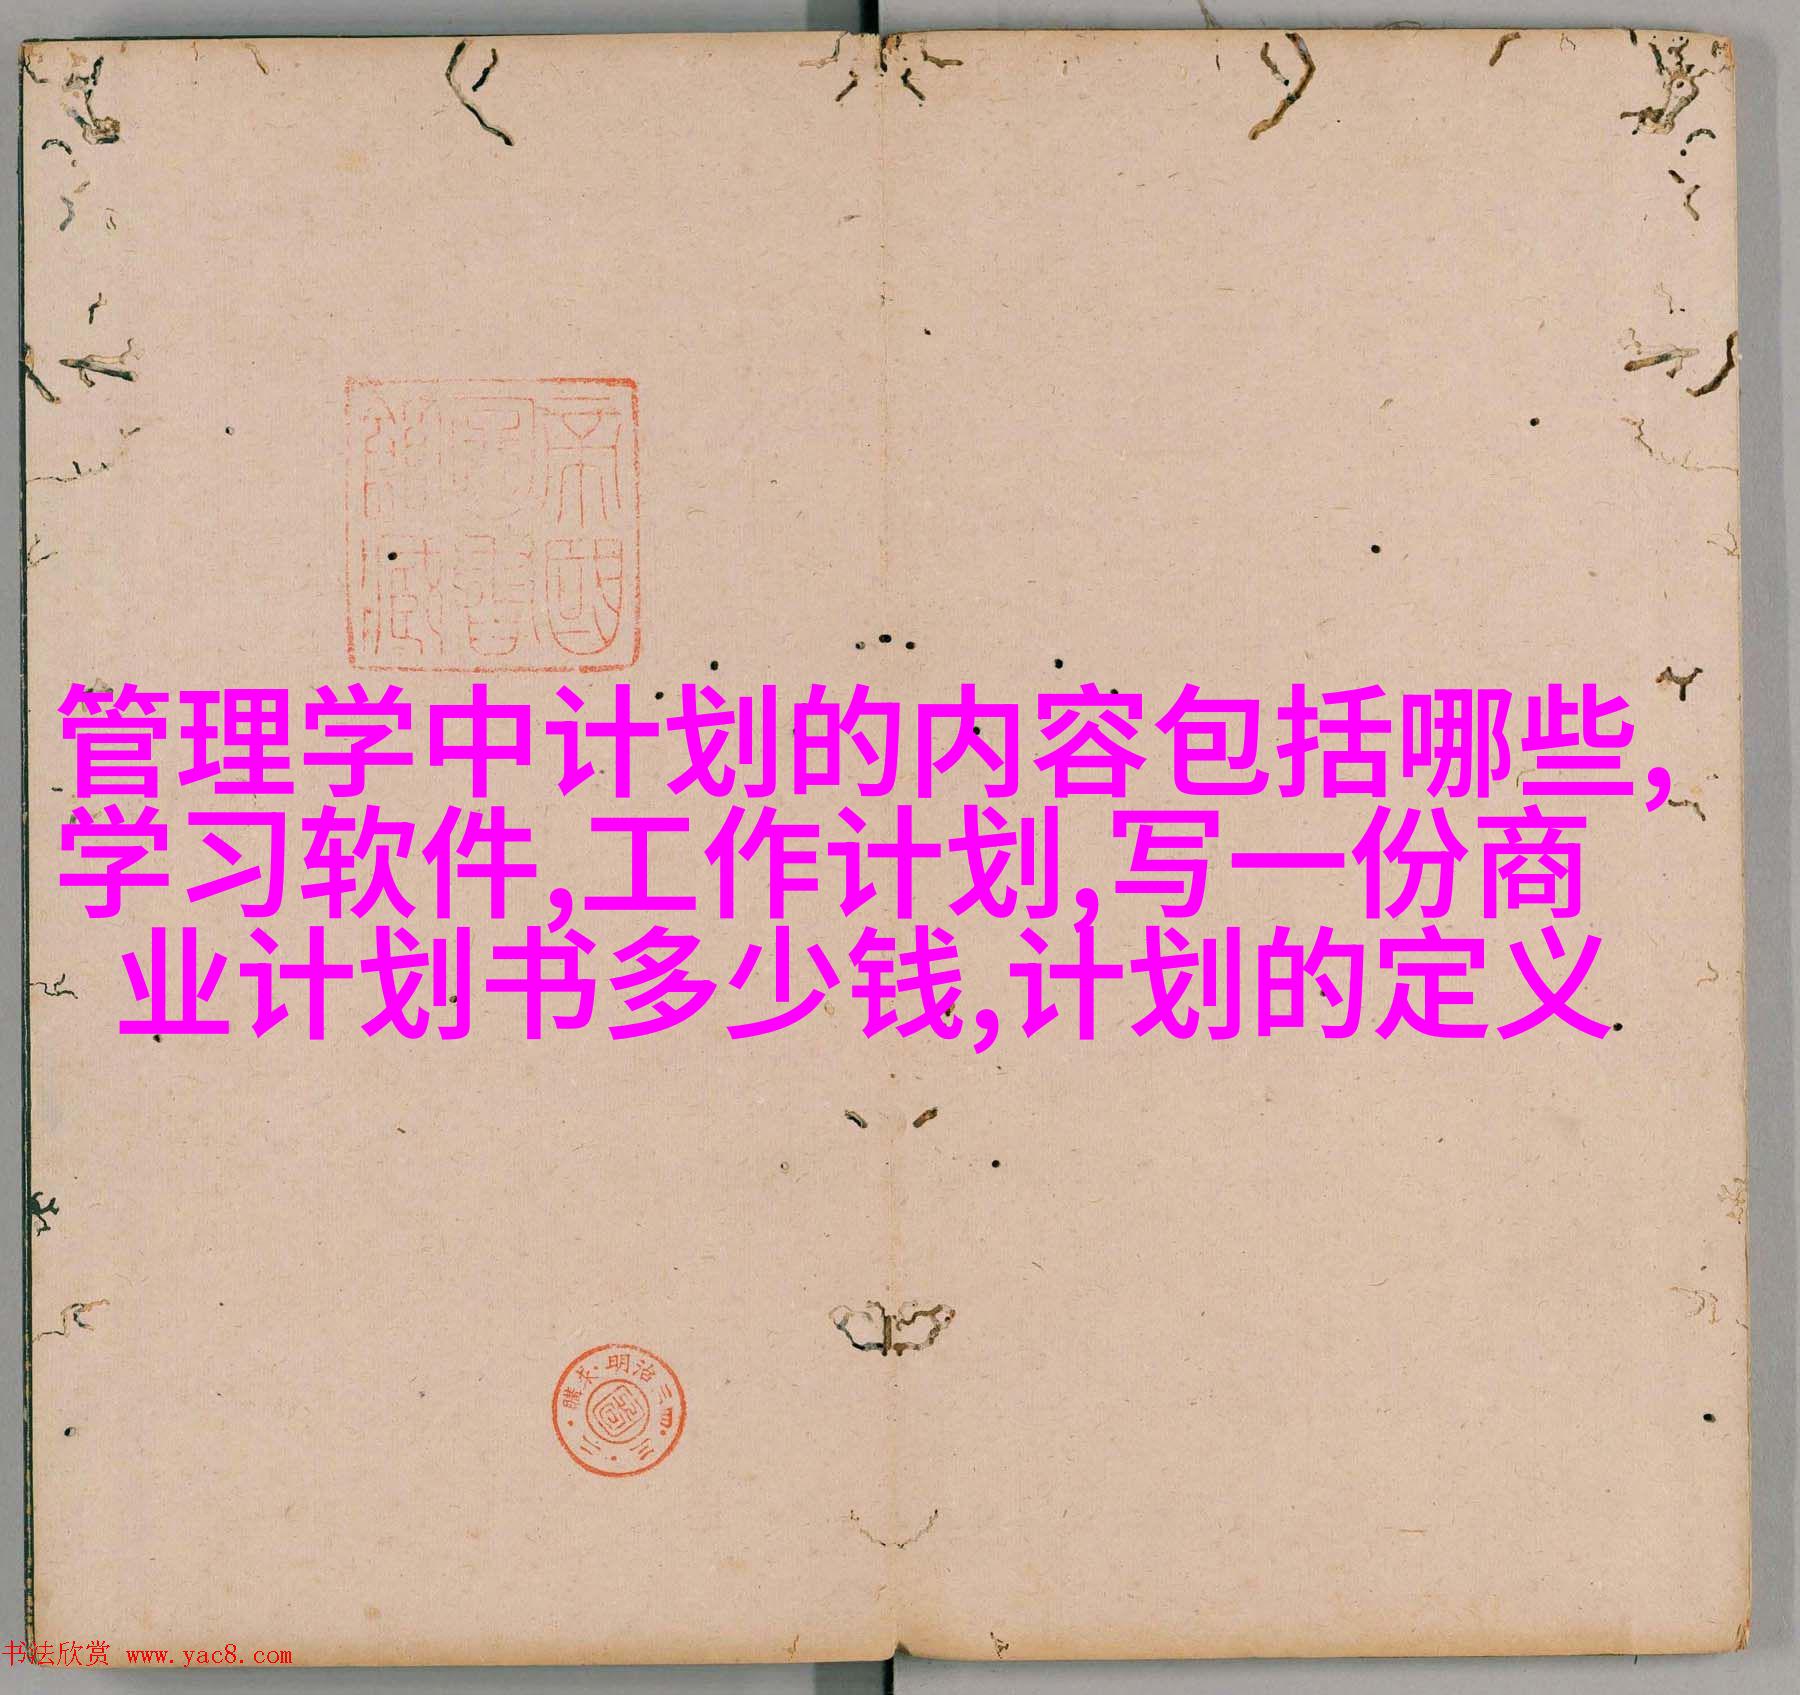 管理学中计划的内容包括哪些,
学习软件,工作计划,写一份商
业计划书多少钱,计划的定义
帝国
図書
館蔵
明治三四・三・二・購求
书法欣赏 www.yac8.com